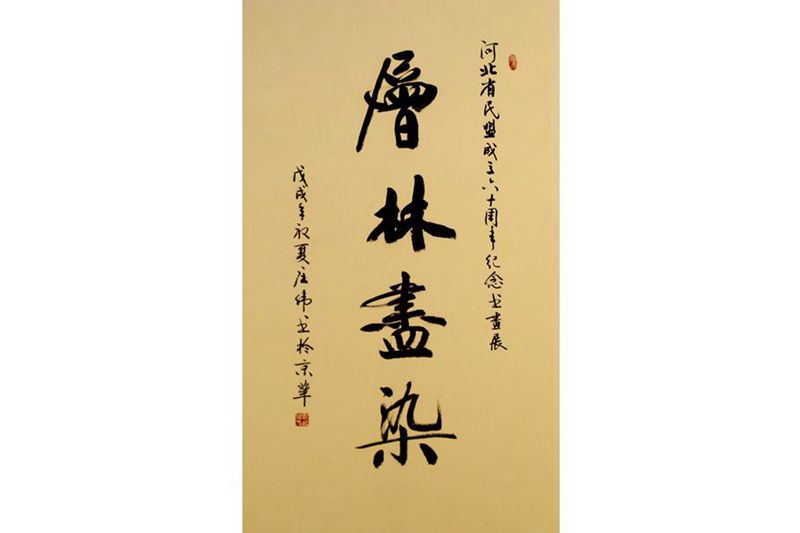 河北省民盟成立六十周年纪念书畫展
層林盡染
戊戌年初夏庄伟书於京華